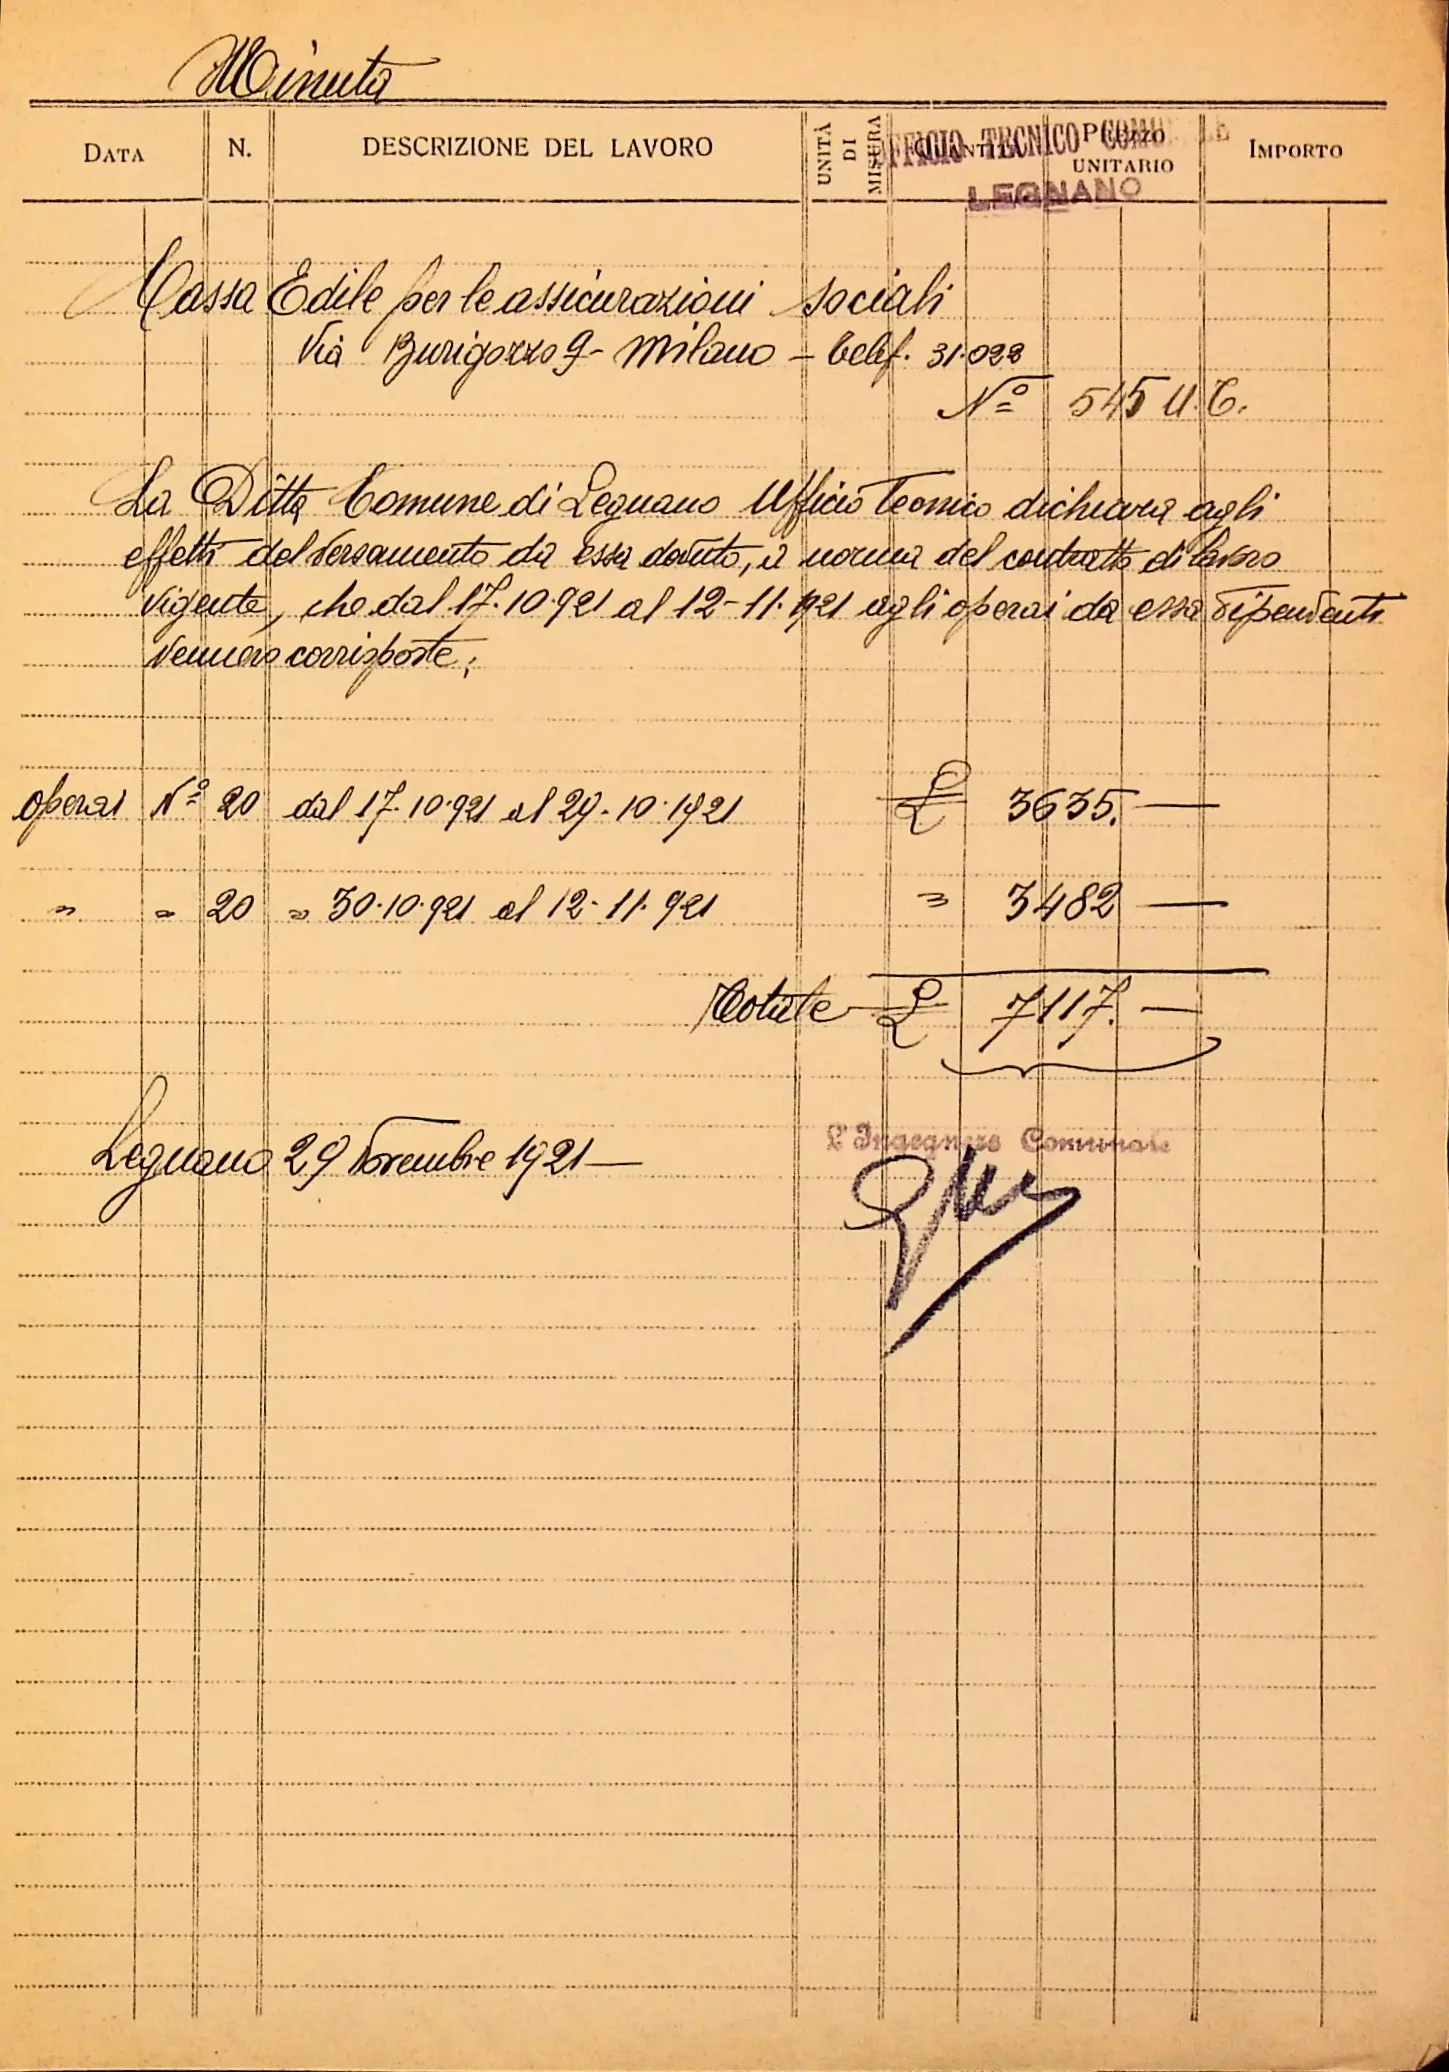 Minuta
DATA N. DESCRIZIONE DEL LAVORO UNITÀ DI MISURA QUANTITÀ PREZZO UNITARIO IMPORTO
UFFICIO TECNICO COMUNALE
LEGNANO
Cassa Edile per le assicurazioni sociali
Via Burigozzo 9 - Milano - Telef. 31-022
Nº 545 U.T.
La Ditta Comune di Legnano Ufficio Tecnico dichiara agli
effetti del versamento da essa dovuto, a norma del contratto di lavoro
vigente, che dal 17.10.921 al 12-11.1921 agli operai da essa dipendenti
vennero corrisposte:
operai Nº 20 dal 17.10.921 al 29-10-1921 £ 3635.—
" " 20 " 30.10.921 al 12-11.921 " 3482 —
Totale £ 7117.—
Legnano 29 Novembre 1921 —
L'Ingegnere Comunale